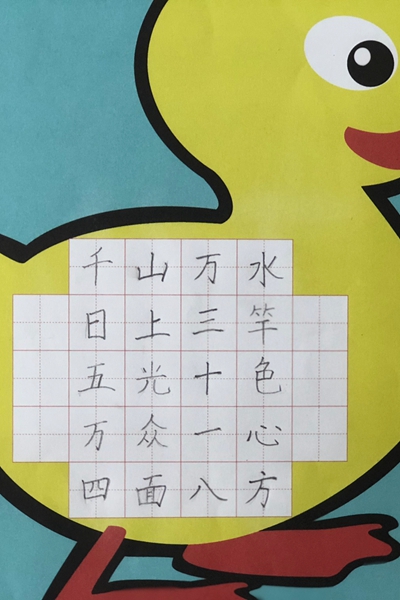 千山万水
日上三竿
五光十色
万众一心
四面八方